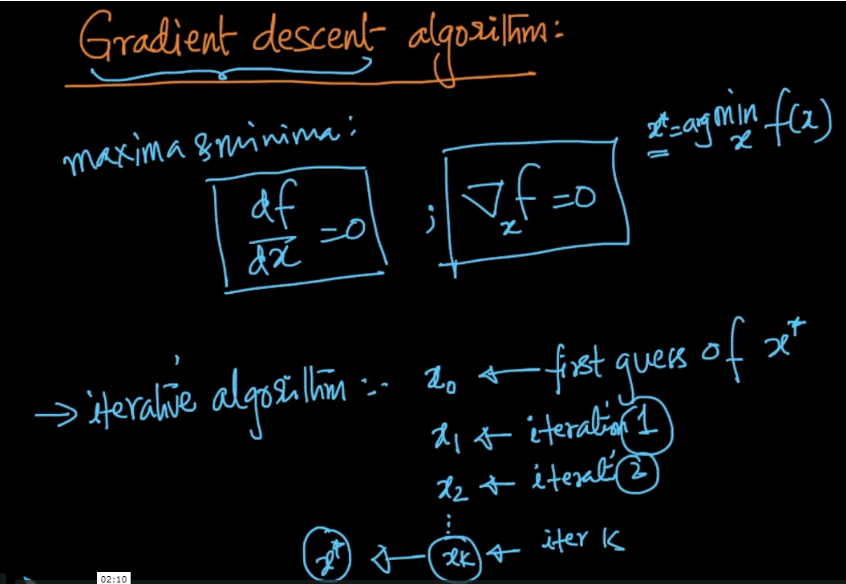 Gradient descent algorithm:
maxima & minima:
x* = argmin f(x)
x
df/dx = 0 ; ∇ₓf = 0
→ iterative algorithm :- x₀ ← first guess of x*
x₁ ← iteration 1
x₂ ← iterati 2
⋮
x* ← xₖ ← iter K
02:10